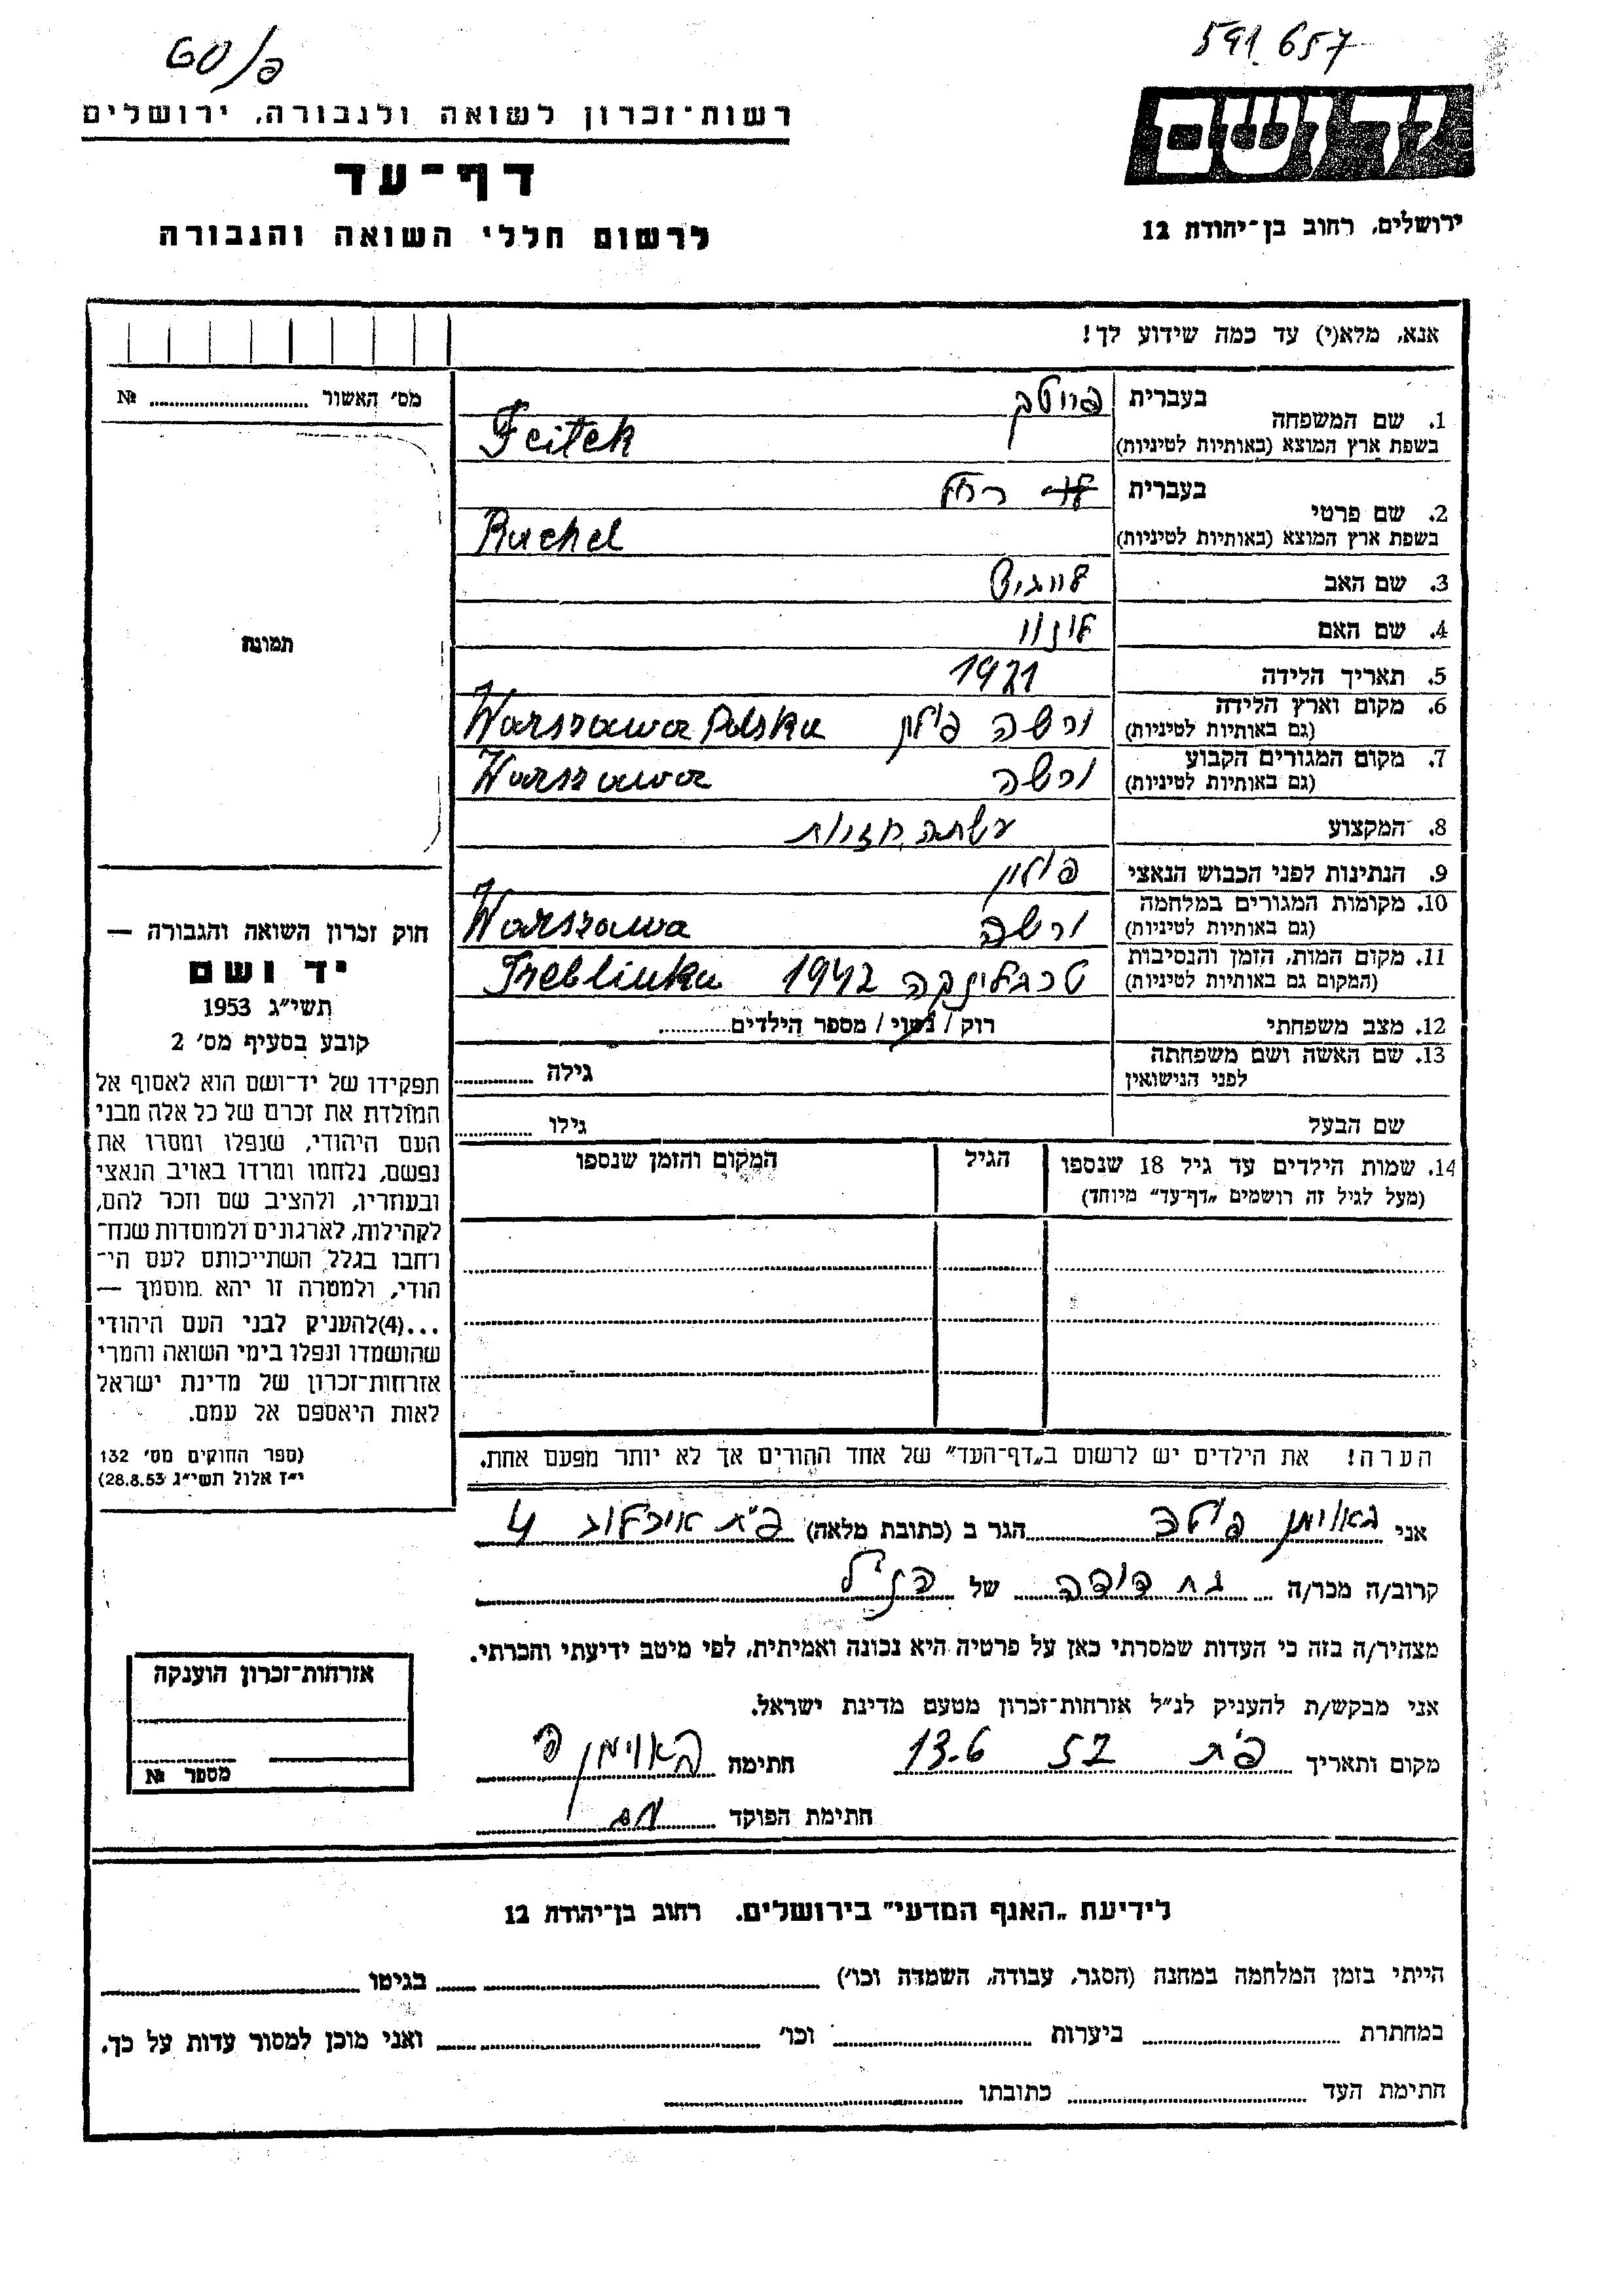 60/פ
591.657
רשות-זכרון לשואה ולגבורה, ירושלים
דף-עד
לרשום חללי השואה והגבורה
יד ושם
ירושלים, רחוב בן-יהודה 12
אנא, מלא(י) עד כמה שידוע לך!
מס' האשור № 
תמונה
1. שם המשפחה
בעברית
פייטק
בשפת ארץ המוצא (באותיות לטיניות)
Feitek
2. שם פרטי
בעברית
רחל
בשפת ארץ המוצא (באותיות לטיניות)
Ruchel
3. שם האב
4. שם האם
5. תאריך הלידה 1921
6. מקום וארץ הלידה
(גם באותיות לטיניות)
ורשה פולין Warszawa Polska
7. מקום המגורים הקבוע
(גם באותיות לטיניות)
ורשה Warszawa
8. המקצוע
9. הנתינות לפני הכבוש הנאצי פולין
10. מקומות המגורים במלחמה
(גם באותיות לטיניות)
ורשה Warszawa
11. מקום המות, הזמן והנסיבות
(המקום גם באותיות לטיניות)
טרבלינקה 1942 Treblinka
12. מצב משפחתי רוק / נשוי / מספר הילדים
13. שם האשה ושם משפחתה
לפני הנישואין
גילה
שם הבעל גילו
14. שמות הילדים עד גיל 18 שנספו
(מעל לגיל זה רושמים „דף-עד" מיוחד)
הגיל
המקום והזמן שנספו
חוק זכרון השואה והגבורה —
יד ושם
תשי"ג 1953
קובע בסעיף מס' 2
תפקידו של יד-ושם הוא לאסוף אל
המולדת את זכרם של כל אלה מבני
העם היהודי, שנפלו ומסרו את
נפשם, נלחמו ומרדו באויב הנאצי
ובעוזריו, ולהציב שם וזכר להם,
לקהילות, לארגונים ולמוסדות שנח-
רחבו בגלל השתייכותם לעם הי-
הודי, ולמטרה זו יהא מוסמך —
...(4)להעניק לבני העם היהודי
שהושמדו ונפלו בימי השואה והמרי
אזרחות-זכרון של מדינת ישראל
לאות היאספם אל עמם.
(ספר החוקים מס' 132
י"ז אלול תשי"ג 28.8.53)
הערה! את הילדים יש לרשום ב„דף-העד" של אחד ההורים אך לא יותר מפעם אחת.
אני הגר ב (כתובת מלאה) פ"ת 4
קרוב/ה מכר/ה בת דודה של הנ"ל
מצהיר/ה בזה כי העדות שמסרתי כאן על פרטיה היא נכונה ואמיתית, לפי מיטב ידיעתי והכרתי.
אני מבקש/ת להעניק לנ"ל אזרחות-זכרון מטעם מדינת ישראל.
מקום ותאריך פ"ת 57 13.6 חתימה
חתימת הפוקד
אזרחות-זכרון הוענקה
מספר №
לידיעת „האגף המדעי" בירושלים. רחוב בן-יהודה 12
הייתי בזמן המלחמה במחנה (הסגר, עבודה, השמדה וכו') בגיטו
במחתרת ביערות וכו' ואני מוכן למסור עדות על כך.
חתימת העד כתובתו